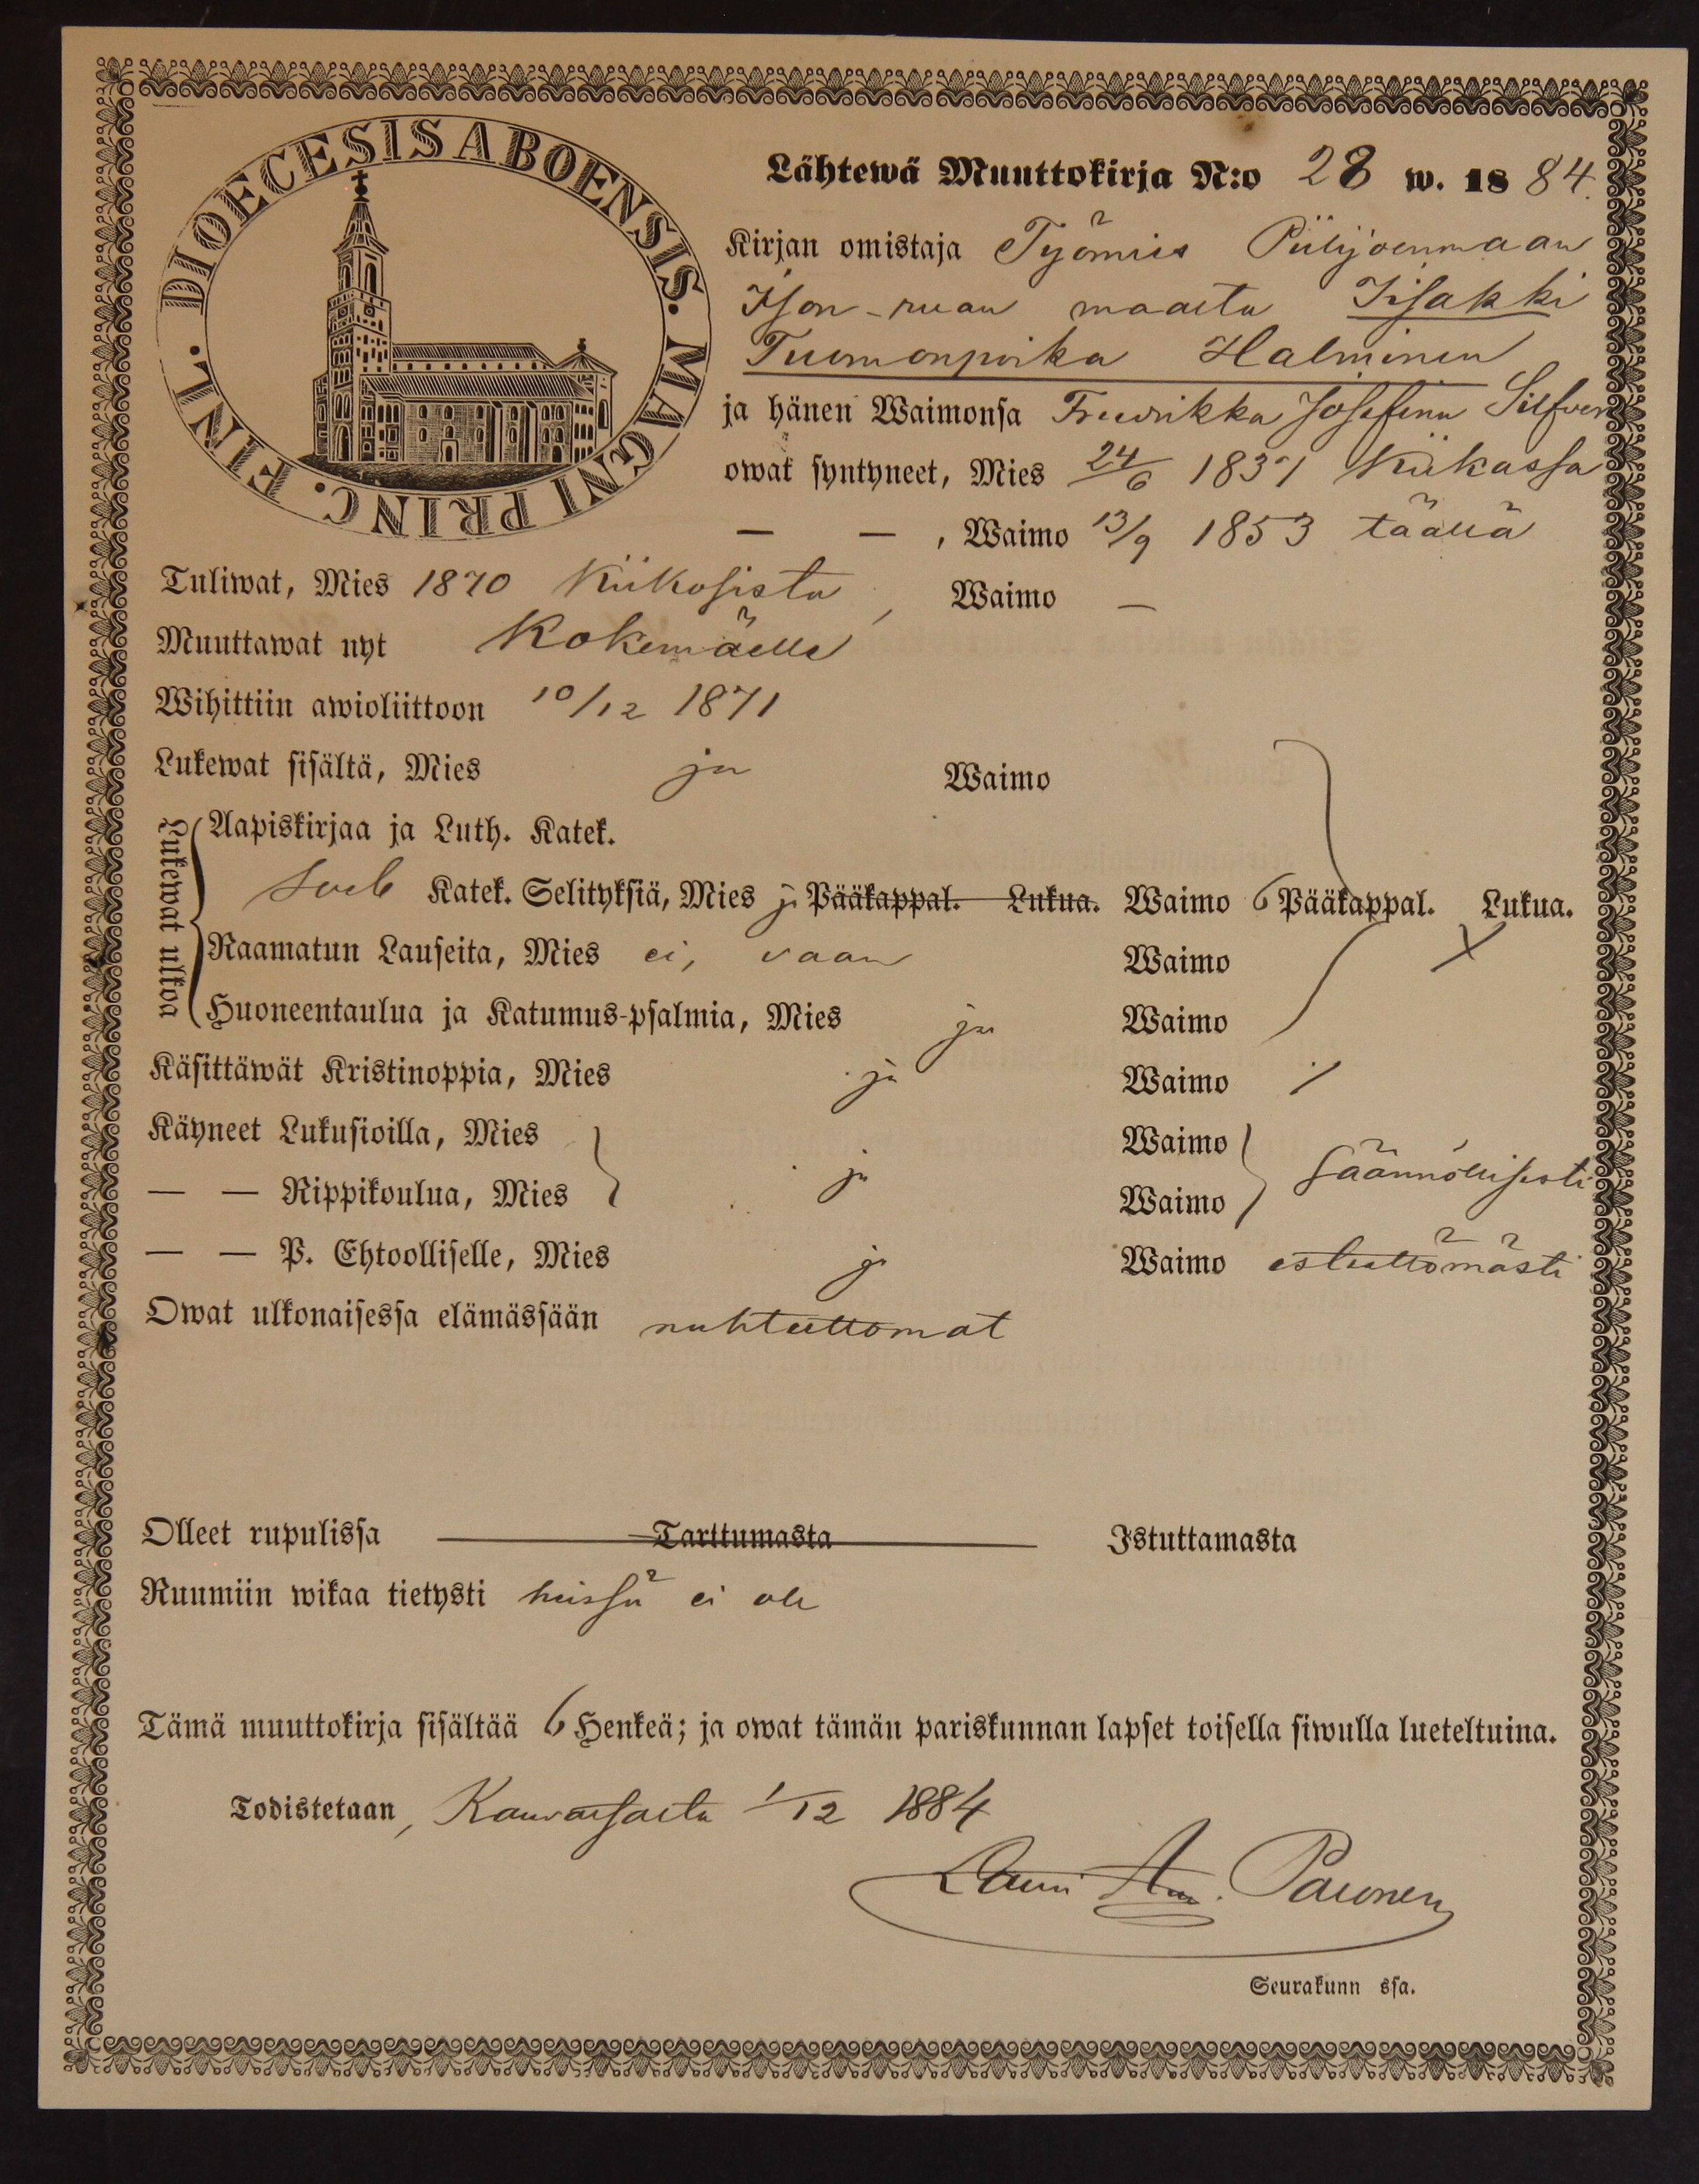 DIOECESIS ABOENSIS. MAGNI PRINC. FINL.
Lähtewä Muuttokirja N:o 28 w. 1884.
Kirjan omistaja Työmies Piilijoenmaan
Ison-ruan maalta Iisakki
Tuomonpoika Halminen
ja hänen Waimonsa Freedrikka Josefina Silfver
owat syntyneet, Mies 24/6 1837 Kiikassa
— — , Waimo 13/9 1853 täällä
Tuliwat, Mies 1870 Kiikosista, Waimo —
Muuttawat nyt Kokemäelle
Wihittiin awioliittoon 10/12 1871
Lukewat sisältä, Mies ja Waimo
Lukewat ulkoa
Aapiskirjaa ja Luth. Katek.
Katek. Selityksiä, Mies ja Pääkappal. Lukua. Waimo 6 Pääkappal. Lukua.
Raamatun Lauseita, Mies ei, vaan Waimo
Huoneentaulua ja Katumus-psalmia, Mies ja Waimo
Käsittäwät Kristinoppia, Mies ja Waimo
Käyneet Lukusioilla, Mies Waimo
— — Rippikoulua, Mies ja Waimo säännöllisesti
— — P. Ehtoolliselle, Mies ja Waimo esteettömästi
Owat ulkonaisessa elämässään nuhteettomat
Olleet rupulissa Tarttumasta Istuttamasta
Ruumiin wikaa tietysti heissä ei ole
Tämä muuttokirja sisältää 6 Henkeä; ja owat tämän pariskunnan lapset toisella siwulla lueteltuina.
Todistetaan, Kauvatsalta 1/12 1884
Lauri Paunonen
Seurakunn ssa.